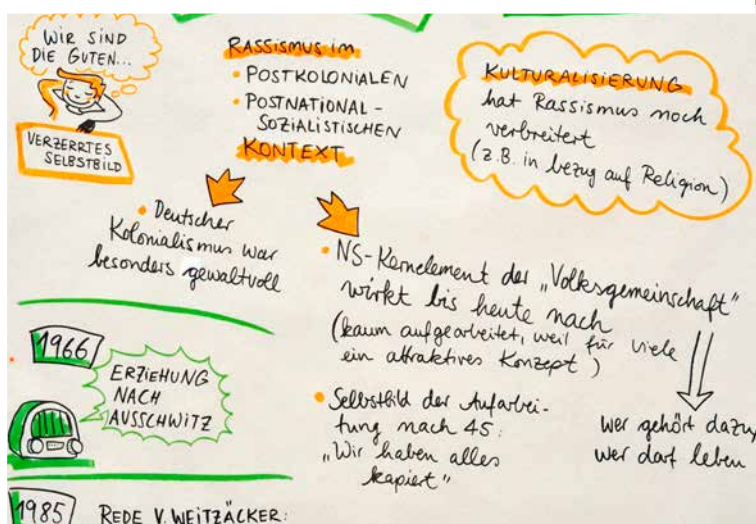 WIR SIND
DIE GUTEN...
VERZERRTES
SELBSTBILD
RASSISMUS IM
• POSTKOLONIALEN
• POSTNATIONAL-
SOZIALISTISCHEN
KONTEXT
KULTURALISIERUNG
hat Rassismus noch
verbreitert
(z.B. in bezug auf Religion)
• Deutscher
Kolonialismus war
besonders gewaltvoll
• NS-Kernelement der „Volksgemeinschaft"
wirkt bis heute nach
(kaum aufgearbeitet, weil für viele
ein attraktives Konzept)
• Selbstbild der Aufarbei-
tung nach 45:
„Wir haben alles
kapiert"
wer gehört dazu,
wer darf leben
1966
ERZIEHUNG
NACH
AUSSCHWITZ
1985
REDE V. WEITZÄCKER: